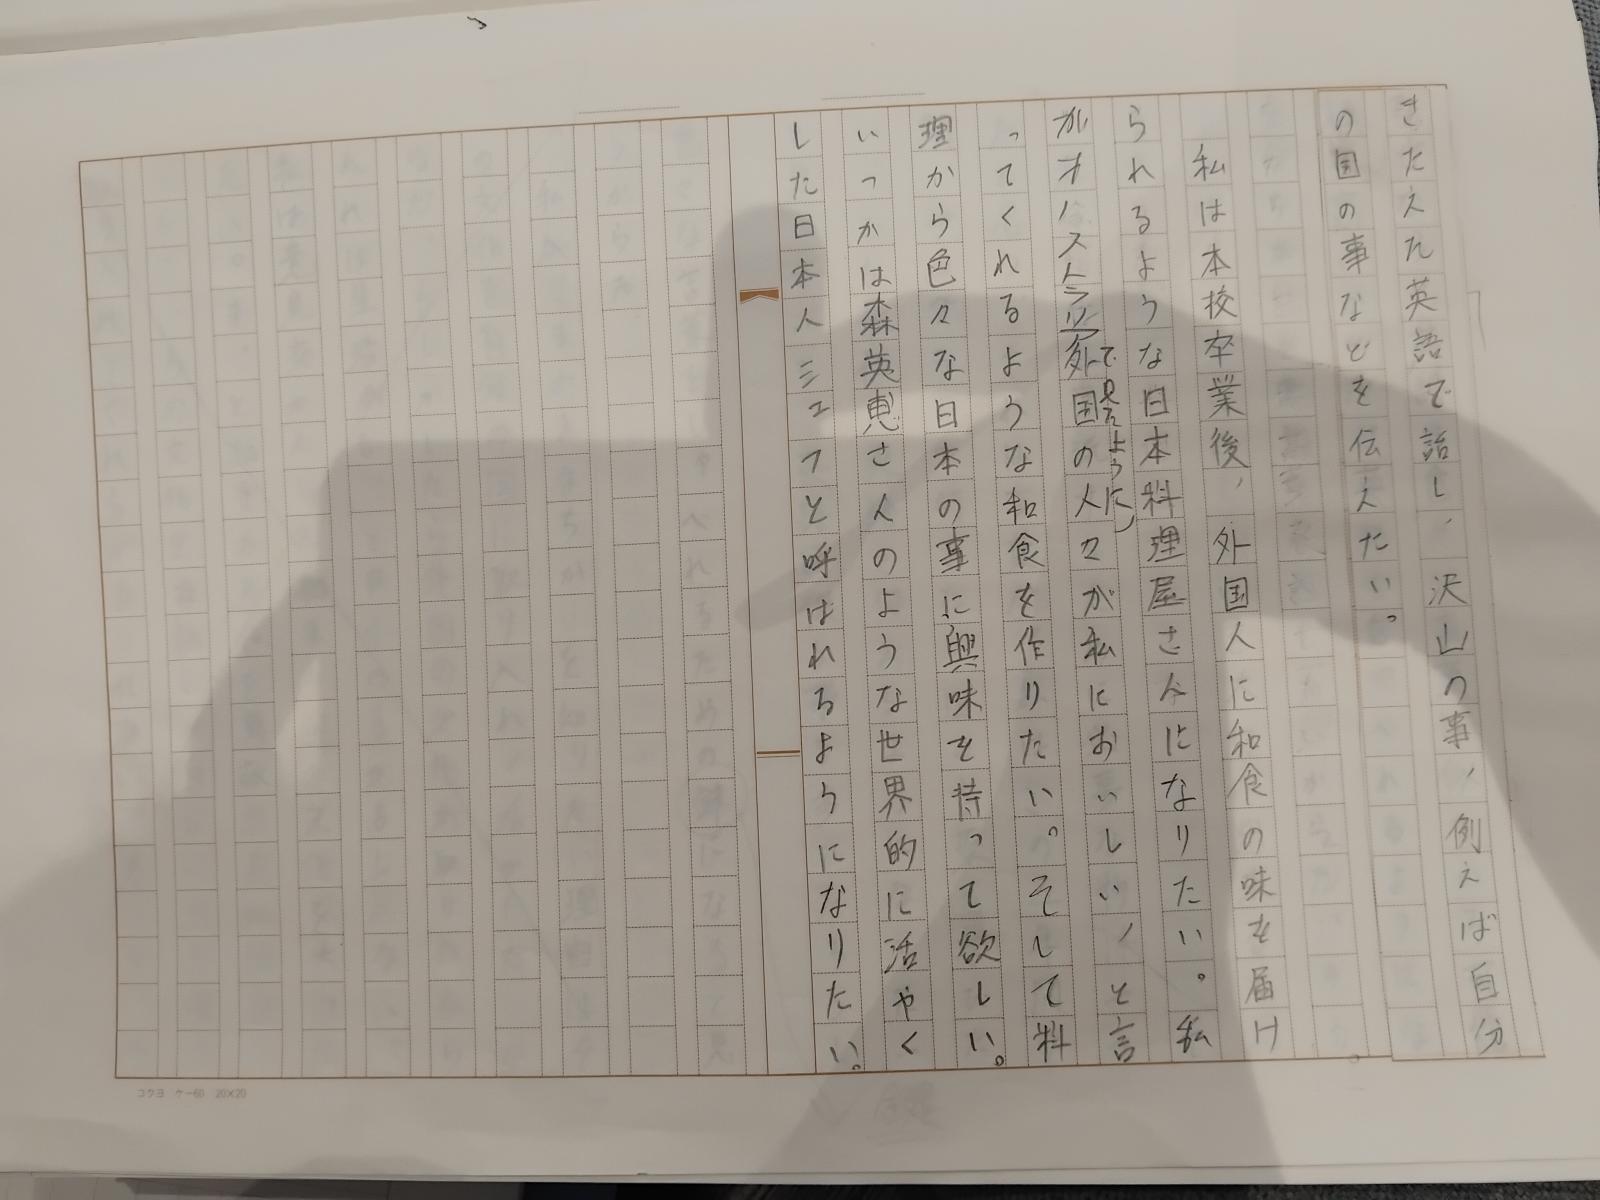 きたえた英語で話し、沢山の事、例えば自分
の国の事などを伝えたい。
私は本校卒業後、外国人に和食の味を届け
られるような日本料理屋さんになりたい。私
が外国の人々が私においしい、と言
ってくれるような和食を作りたい。そして料
理から色々な日本の事に興味を持って欲しい。
いつかは森英恵さんのような世界的に活やく
した日本人シェフと呼はれるようになりたい。
コクヨ ケー60 20×20